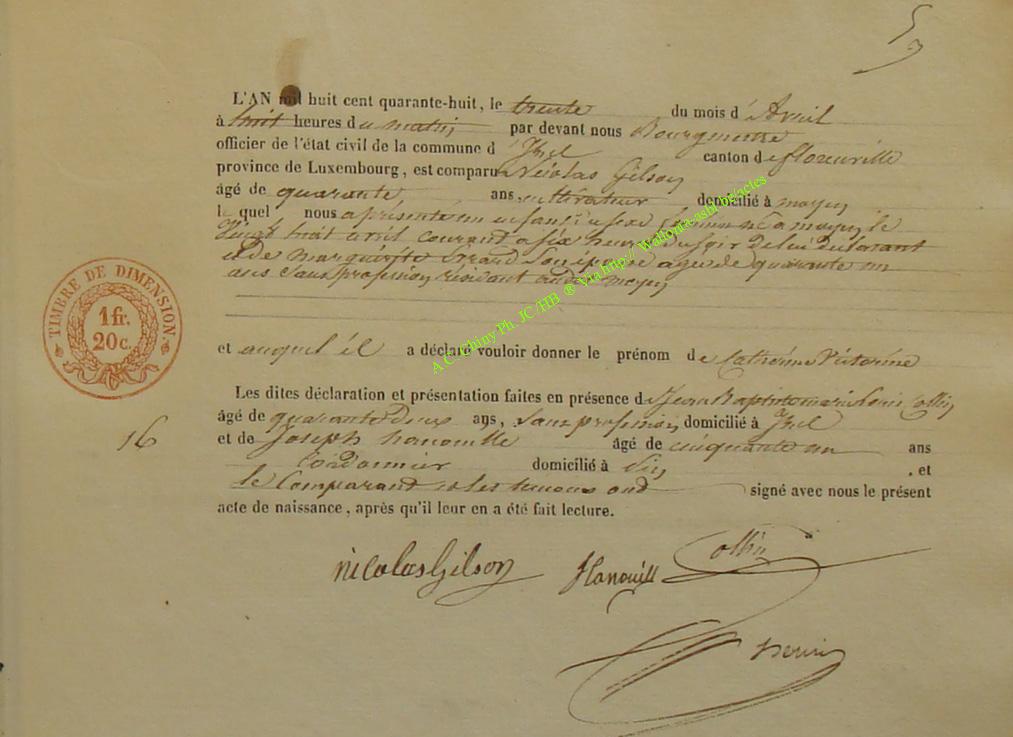 L'AN mil huit cent quarante-huit, le trente du mois d'Avril
à huit heures du matin par devant nous Bourgmestre
officier de l'état civil de la commune d'Izel canton de florenville
province de Luxembourg, est comparu Nicolas Gilson
âgé de quarante ans, domicilié à moyen
le quel nous a présenté un enfant du sexe feminin né a moyen le
Vingt huit avril courant a six heures du soir de lui Déclarant
et de marguerite son épouse agée de quarante un
ans sans profession résidant audit moyen
TIMBRE DE DIMENSION
1 fr.
20 c.
et auquel il a déclaré vouloir donner le prénom de Catherine Victorine
Les dites déclaration et présentation faites en présence de Jean Baptiste marie louis Collin
âgé de quarante Deux ans, sans profession domicilié à Izel
16
et de Joseph hanouille âgé de cinquante un ans
Cordonnier domicilié à . et
le Comparant et les temoins ont signé avec nous le présent
acte de naissance, après qu'il leur en a été fait lecture.
nicolas Gilson Hanouill Collin
A.C. Chiny Ph. JC /HB ® Via http:// Wallonia-asbl.org/actes